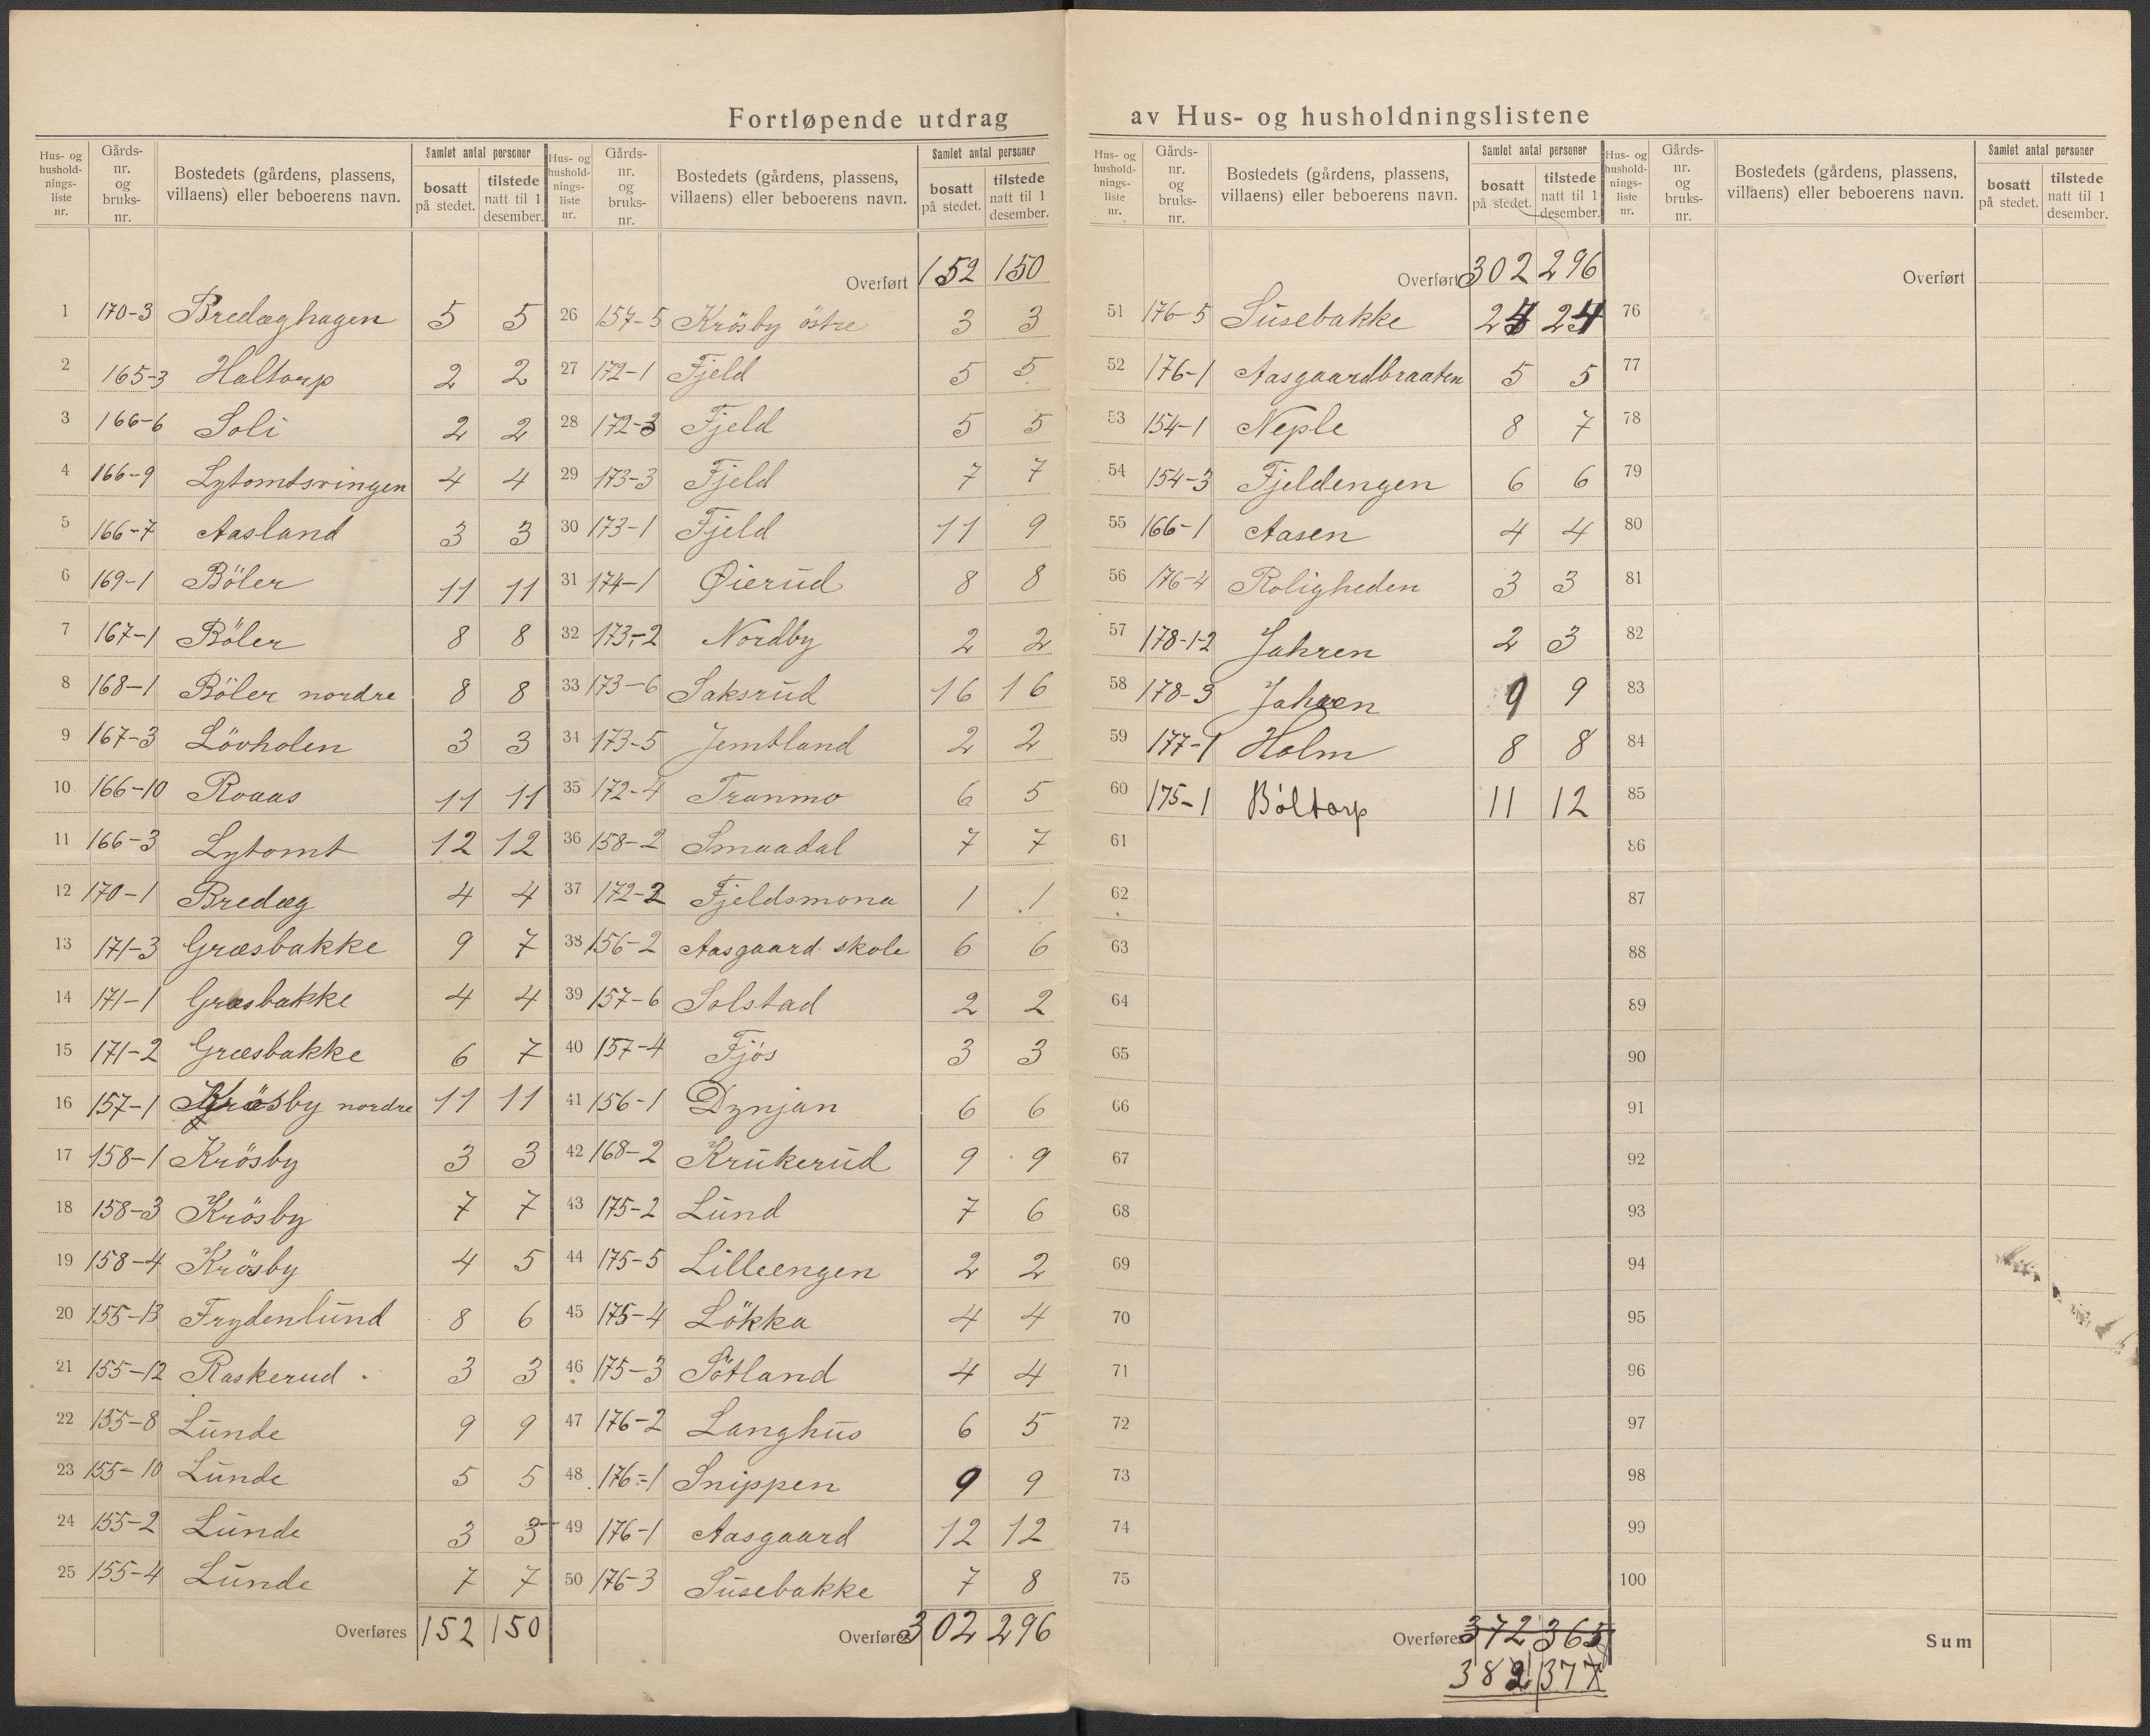 Fortløpende utdrag av Hus- og husholdningslistene
Hus- og hushold-nings-liste nr. Gårds-nr. og bruks-nr. Bostedets (gårdens, plassens, villaens) eller beboerens navn. Samlet antal personer bosatt på stedet. tilstede natt til 1 desember.
1 170-3 Bredæghagen 5 5
2 165-3 Haltorp 2 2
3 166-6 Soli 2 2
4 166-9 Lytomtsvingen 4 4
5 166-7 Aasland 3 3
6 169-1 Böler 11 11
7 167-1 Böler 8 8
8 168-1 Böler nordre 8 8
9 167-3 Lövholen 3 3
10 166-10 Roaas 11 11
11 166-3 Lytomt 12 12
12 170-1 Bredæg 4 4
13 171-3 Græsbakke 9 7
14 171-1 Græsbakke 4 4
15 171-2 Græsbakke 6 7
16 157-1 Krösby nordre 11 11
17 158-1 Krösby 3 3
18 158-3 Krösby 7 7
19 158-4 Krösby 4 5
20 155-13 Frydenlund 8 6
21 155-12 Raskerud 3 3
22 155-8 Lunde 9 9
23 155-10 Lunde 5 5
24 155-2 Lunde 3 3
25 155-4 Lunde 7 7
Overføres 152 150
Hus- og hushold-nings-liste nr. Gårds-nr. og bruks-nr. Bostedets (gårdens, plassens, villaens) eller beboerens navn. Samlet antal personer bosatt på stedet. tilstede natt til 1 desember.
Overført 152 150
26 157-5 Krösby östre 3 3
27 172-1 Fjeld 5 5
28 172-3 Fjeld 5 5
29 173-3 Fjeld 7 7
30 173-1 Fjeld 11 9
31 174-1 Øierud 8 8
32 173-2 Nordby 2 2
33 173-6 Saksrud 16 16
34 173-5 Jemtland 2 2
35 172-4 Tranmo 6 5
36 158-2 Smaadal 7 7
37 172-2 Fjeldsmona 1 1
38 156-2 Aasgaard skole 6 6
39 157-6 Solstad 2 2
40 157-4 Fjös 3 3
41 156-1 Dynjan 6 6
42 168-2 Krukerud 9 9
43 175-2 Lund 7 6
44 175-5 Lilleengen 2 2
45 175-4 Lökka 4 4
46 175-3 Sötland 4 4
47 176-2 Langhus 6 5
48 176-1 Snippen 9 9
49 176-1 Aasgaard 12 12
50 176-3 Susebakke 7 8
Overføres 302 296
Hus- og hushold-nings-liste nr. Gårds-nr. og bruks-nr. Bostedets (gårdens, plassens, villaens) eller beboerens navn. Samlet antal personer bosatt på stedet. tilstede natt til 1 desember.
Overført 302 296
51 176-5 Susebakke 24 24
52 176-1 Aasgaardbraaten 5 5
53 154-1 Neple 8 7
54 154-3 Fjeldengen 6 6
55 166-1 Aasen 4 4
56 176-4 Roligheden 3 3
57 178-1-2 Jahren 2 3
58 178-3 Jahren 9 9
59 177-1 Holm 8 8
60 175-1 Böltorp 11 12
61
62
63
64
65
66
67
68
69
70
71
72
73
74
75
Overføres 372 365
382 377
Hus- og hushold-nings-liste nr. Gårds-nr. og bruks-nr. Bostedets (gårdens, plassens, villaens) eller beboerens navn. Samlet antal personer bosatt på stedet. tilstede natt til 1 desember.
Overført
76
77
78
79
80
81
82
83
84
85
86
87
88
89
90
91
92
93
94
95
96
97
98
99
100
Sum